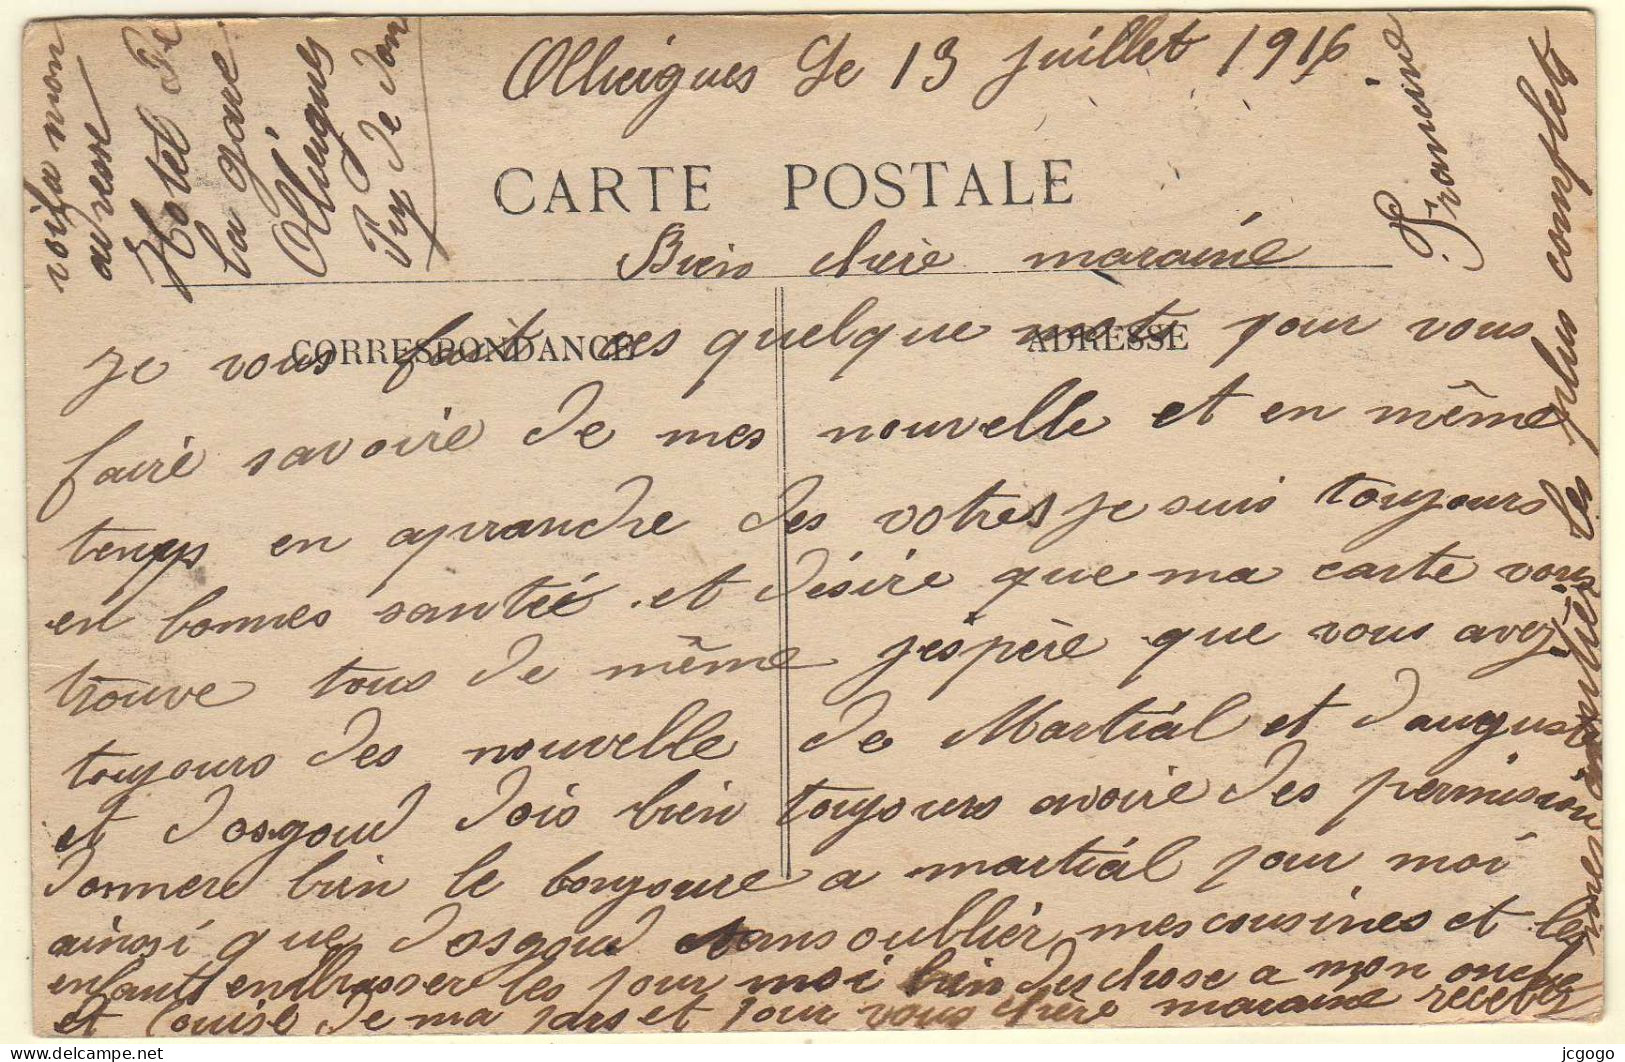 Ollierigues Le 13 juillet 1916
CARTE POSTALE
Bien chère maraine
CORRESPONDANCE
ADRESSE
je vous fait ses quelque mots pour vous
faire savoire de mes nouvelle et en même
temps en aprandre des votres je suis toujours
en bonnes santée et désire que ma carte vous
trouve tous de même j'espère que vous avez
toujours des nouvelle de Martial et d'auguste
et dosgoud dois bien toujours avoire des permision
donnere bien le bonjoure a martial pour moi
ainsi que dosgoud sans oublier mes cousines et les
enfants embrasser les pour moi bien des chose a mon oncle
et Louise de ma pars et pour vous chère maraine recevez
mes amitiés les plus complets
Framoine
voila mon
adresse
Hotel De
la gare
Ollierigues
Puy de dom
jcgogo